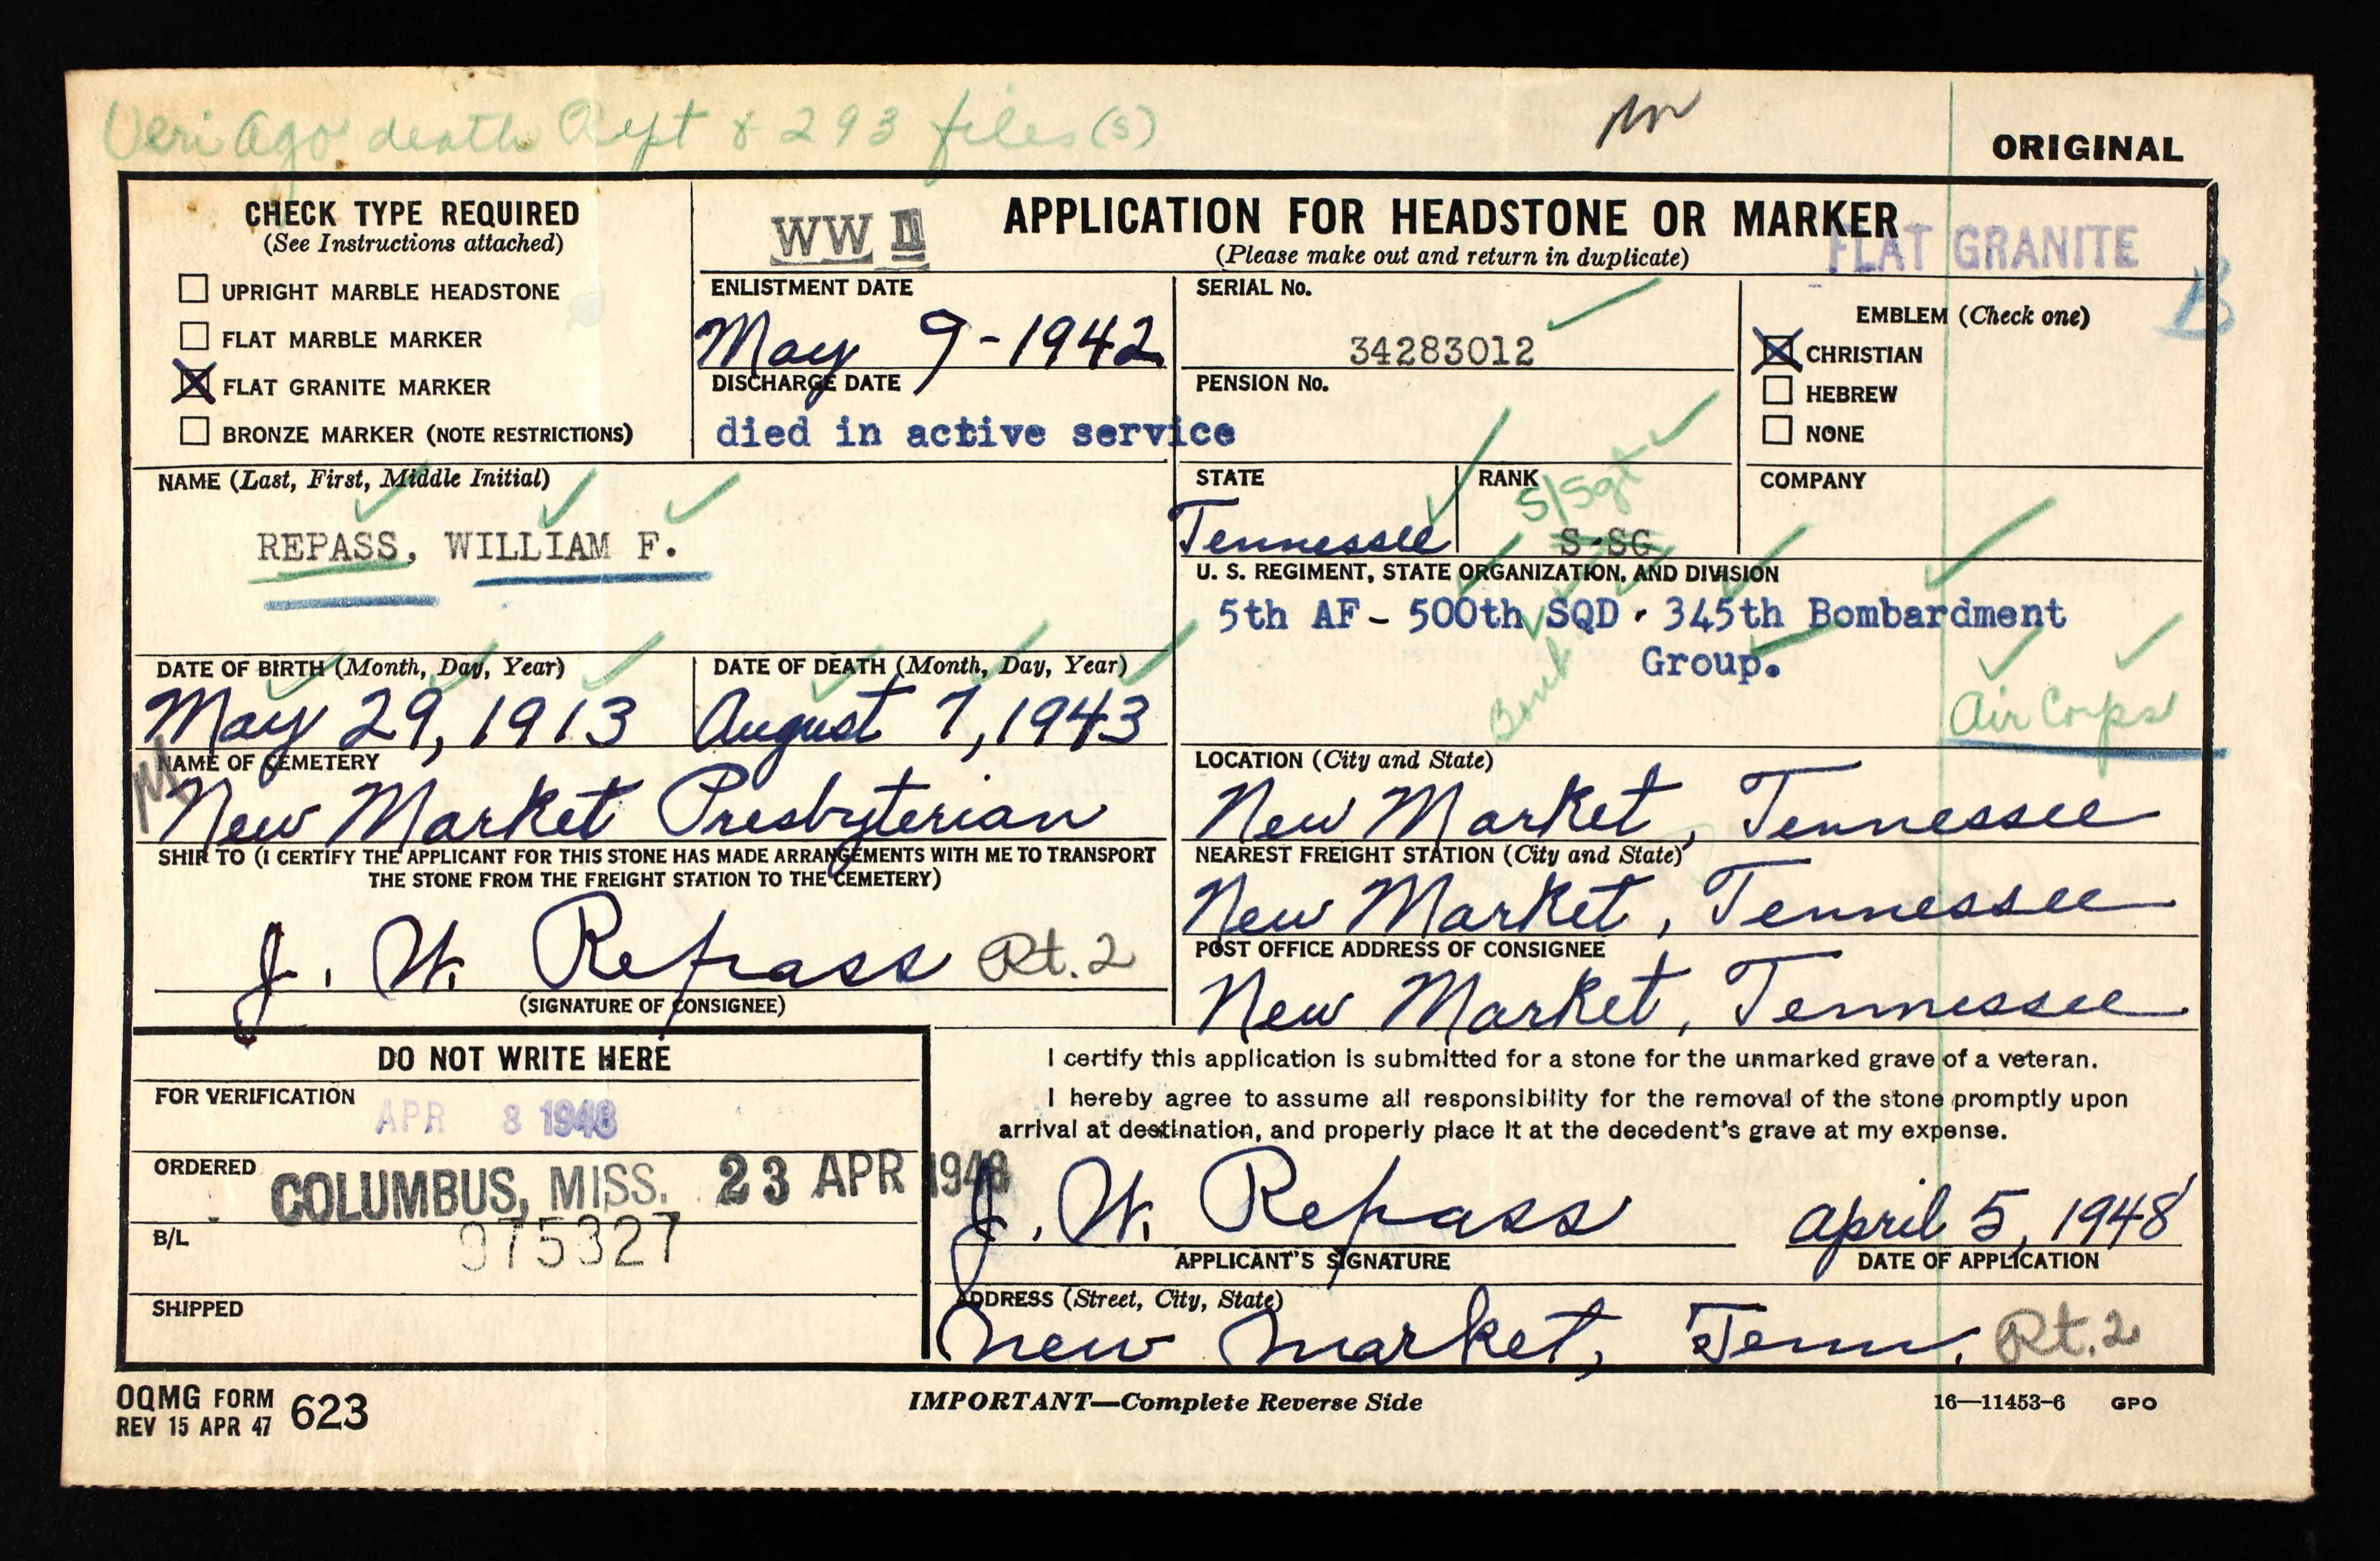 Veri Ago death Rept & 293 files (s)
ORIGINAL
CHECK TYPE REQUIRED
(See Instructions attached)
UPRIGHT MARBLE HEADSTONE
FLAT MARBLE MARKER
FLAT GRANITE MARKER
BRONZE MARKER (NOTE RESTRICTIONS)
WW II
APPLICATION FOR HEADSTONE OR MARKER
(Please make out and return in duplicate)
FLAT GRANITE
B
ENLISTMENT DATE
May 9-1942
DISCHARGE DATE
died in active service
SERIAL No.
34283012
PENSION No.
EMBLEM (Check one)
CHRISTIAN
HEBREW
NONE
NAME (Last, First, Middle Initial)
REPASS, WILLIAM F.
STATE
Tennessee
RANK
S/Sgt
S-SG
COMPANY
U. S. REGIMENT, STATE ORGANIZATION, AND DIVISION
5th AF - 500th SQD. 345th Bombardment
Group.
Bomb
Air Corps
DATE OF BIRTH (Month, Day, Year)
May 29, 1913
DATE OF DEATH (Month, Day, Year)
August 7, 1943
NAME OF CEMETERY
New Market Presbyterian
LOCATION (City and State)
New Market, Tennessee
SHIP TO (I CERTIFY THE APPLICANT FOR THIS STONE HAS MADE ARRANGEMENTS WITH ME TO TRANSPORT
THE STONE FROM THE FREIGHT STATION TO THE CEMETERY)
J. W. Repass Rt. 2
(SIGNATURE OF CONSIGNEE)
NEAREST FREIGHT STATION (City and State)
New Market, Tennessee
POST OFFICE ADDRESS OF CONSIGNEE
New Market, Tennessee
DO NOT WRITE HERE
FOR VERIFICATION
APR 8 1948
ORDERED
COLUMBUS, MISS. 23 APR 1948
B/L
975327
SHIPPED
I certify this application is submitted for a stone for the unmarked grave of a veteran.
I hereby agree to assume all responsibility for the removal of the stone promptly upon
arrival at destination, and properly place it at the decedent's grave at my expense.
J. W. Repass
APPLICANT'S SIGNATURE
April 5, 1948
DATE OF APPLICATION
ADDRESS (Street, City, State)
New Market, Tenn. Rt. 2
OQMG FORM 623
REV 15 APR 47
IMPORTANT—Complete Reverse Side
16—11453-6 GPO